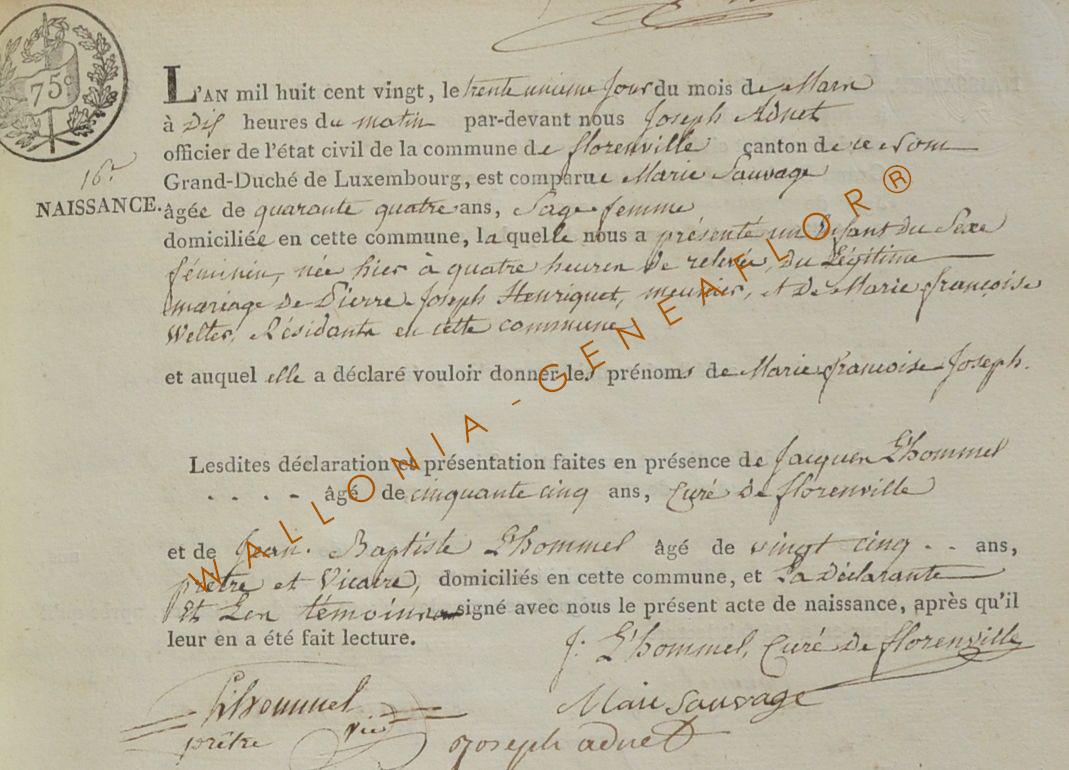 75 c
L'AN mil huit cent vingt, le trente unieme Jour du mois de Mars
à Dix heures du matin par-devant nous Joseph Adnet
officier de l'état civil de la commune de florenville canton de ce Nom
16e
NAISSANCE.
Grand-Duché de Luxembourg, est comparue Marie Sauvage
âgée de quarante quatre ans, Sage femme
domiciliée en cette commune, laquelle nous a présenté un Enfant Du Sexe
féminin, née hier à quatre heures de relevée, Du Légitime
mariage de Pierre Joseph Henriquet, meunier, et De Marie françoise
Welter, Résidants en cette commune
et auquel elle a déclaré vouloir donner les prénoms de Marie françoise Joseph.
Lesdites déclaration et présentation faites en présence de Jacques L'hommel
. . . . âgé de cinquante cinq ans, Curé De florenville
et de Jean Baptiste L'hommel âgé de vingt cinq . . ans,
prêtre et Vicaire, domiciliés en cette commune, et La Déclarante
Et Les témoins signé avec nous le présent acte de naissance, après qu'il
leur en a été fait lecture.
J: L'hommel, Curé De florenville
Lhommel
prêtre vic
Marie Sauvage
Joseph adnet
WALLONIA - GENEAFLOR ®